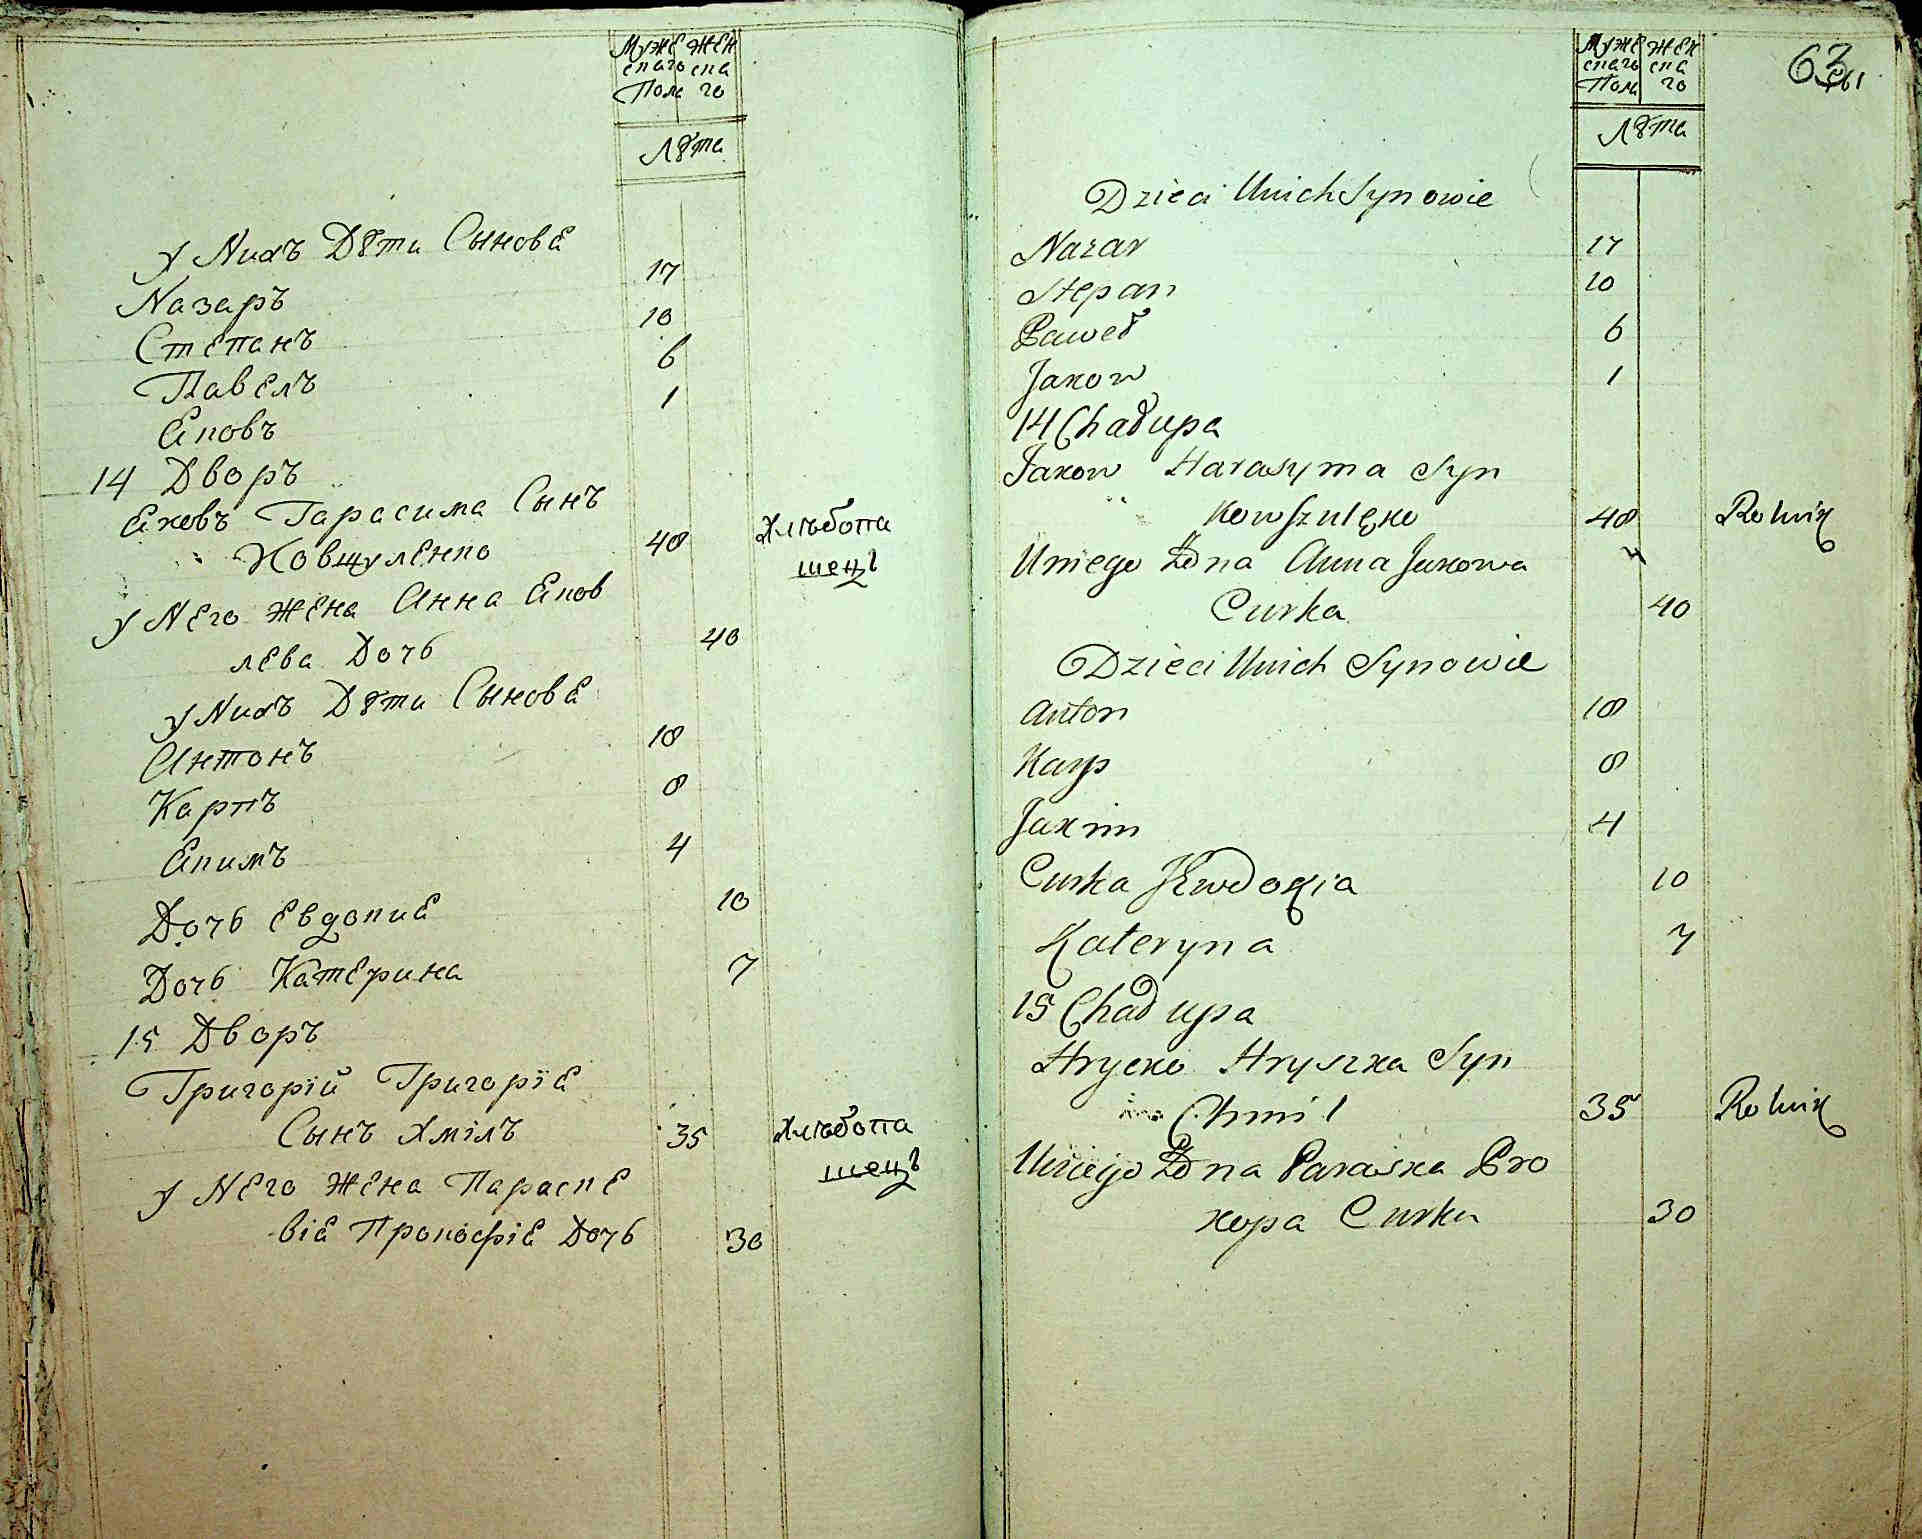 Муже Жен
скаго ска
Пола го
Лѣта
у Нихъ Дѣти Сынове
Назаръ 17
Степанъ 10
Павелъ 6
Яковъ 1
14 Дворъ
Яковъ Гарасима Сынъ
Ковшуленко 48 Хлѣбопа
шецъ
у Него жена Анна Яков
лева Дочь 40
у Нихъ Дѣти Сынове
Антонъ 18
Карпъ 8
Якимъ 4
Дочь Евдокия 10
Дочь Катерина 7
15 Дворъ
Григорїй Григорїя
Сынъ Хмiлъ 35 Хлѣбопа
шецъ
у Него жена Параске
вiя Прокофiя Дочь 30
Муже Жен
скаго ска
Пола го
Лѣта
63
Dzieci Unich Synowie
Nazar 17
Stepan 10
Paweł 6
Jakow 1
14 Chałupa
Jakow Harasyma Syn
Kowszulęko 48 Rolnik
Uniego Żona Anna Jakowa
Curka 40
Dzieci Unich Synowie
Anton 18
Karp 8
Jakim 4
Curka Jewdokia 10
Kateryna 7
15 Chałupa
Hrycko Hryszka Syn
Chmil 35 Rolnik
Uniego Żona Paraska Pro
kopa Curka 30